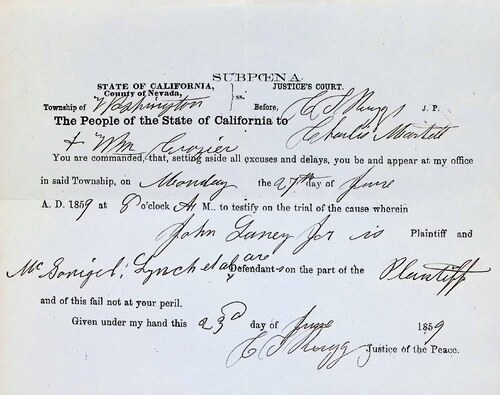 SUBPŒNA.
STATE OF CALIFORNIA,
County of Nevada,
ss.
JUSTICE'S COURT.
Township of Washington Before, J. P.
The People of the State of California to Charlie
+ Wm Crozier
You are commanded, that, setting aside all excuses and delays, you be and appear at my office
in said Township, on Monday the 27th day of June
A. D. 1859 at 8 o'clock A M., to testify on the trial of the cause wherein
John Laney Jr is Plaintiff and
McGonigel, Lynch et al are Defendants on the part of the Plaintiff
and of this fail not at your peril.
Given under my hand this 23d day of June 1859
Justice of the Peace.